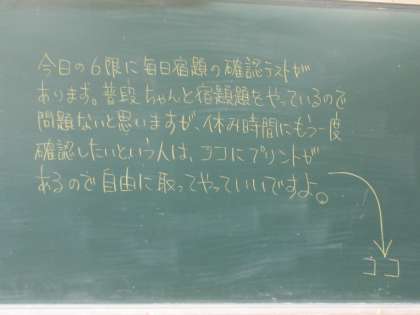 今日の6限に毎日宿題の確認テストが
あります。普段ちゃんと宿題題をやっているので
問題ないと思いますが、休み時間にもう一度
確認したいという人は、ココにプリントが
あるので自由に取ってやっていいですよ。
ココ